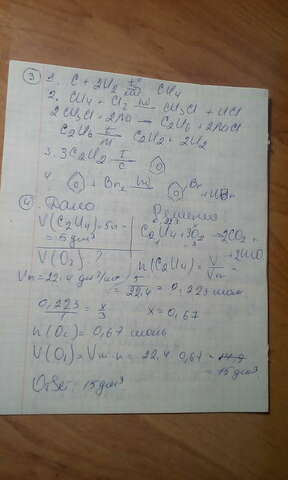 ③ 1. C + 2H2 t° Ni CH4
2. CH4 + Cl2 hν CH3Cl + HCl
2CH3Cl + 2Na → C2H6 + 2NaCl
C2H6 t C2H2 + 2H2
3. 3C2H2 t C
4. + Br2 Br + HBr
④ Дано Решение
V(C2H4) = 5л = 5дм³ 0,223 x
C2H4 + 3O2 → 2CO2 + 2H2O
1 3
V(O2) ? n(C2H4) = V/Vm =
Vm = 22,4 дм³/моль = 5/22,4 = 0,223 моль
0,223/1 = x/3 x = 0,67
n(O2) = 0,67 моль
V(O2) = Vm·n = 22,4·0,67 = 15дм³
Ответ: 15дм³